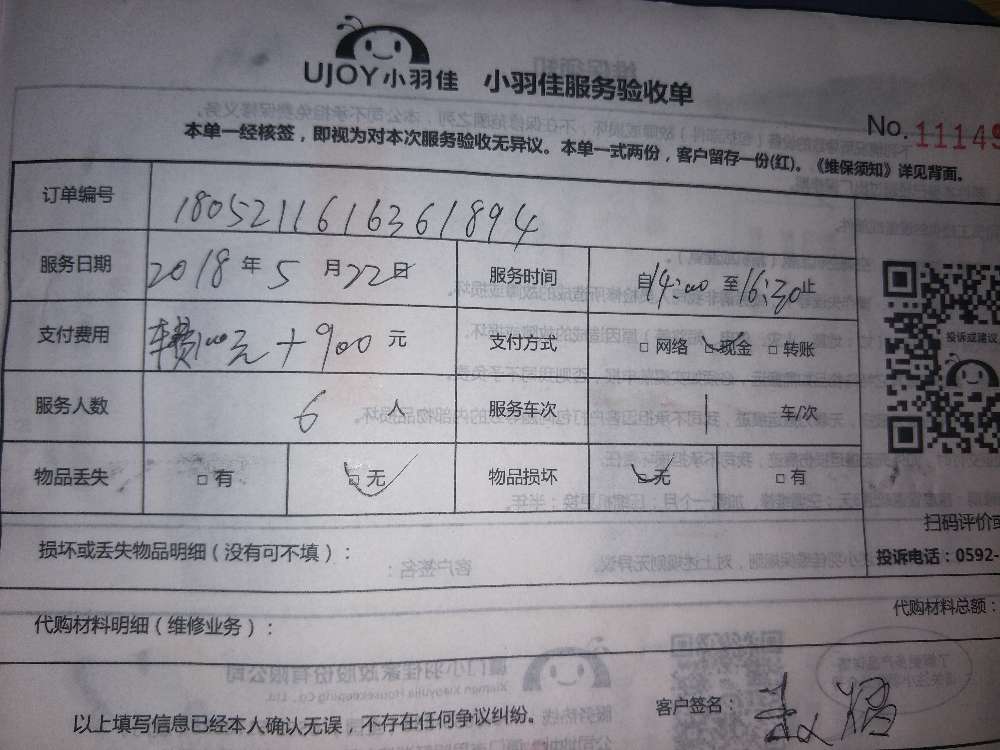 UJOY小羽佳 小羽佳服务验收单
No. 11149
本单一经核签，即视为对本次服务验收无异议。本单一式两份，客户留存一份(红)。《维保须知》详见背面。
订单编号 180521161636 1894
服务日期 2018 年 5 月 22 日 服务时间 自14:00 至16:30止
支付费用 车费100元+900 元 支付方式 □ 网络 □ 现金 □ 转账
投诉或建议
服务人数 6 人 服务车次 1 车/次
物品丢失 □ 有 □ 无 物品损坏 □ 无 □ 有
扫码评价或
损坏或丢失物品明细（没有可不填）：
投诉电话：0592-
代购材料总额：
代购材料明细（维修业务）：
客户签名：
以上填写信息已经本人确认无误，不存在任何争议纠纷。